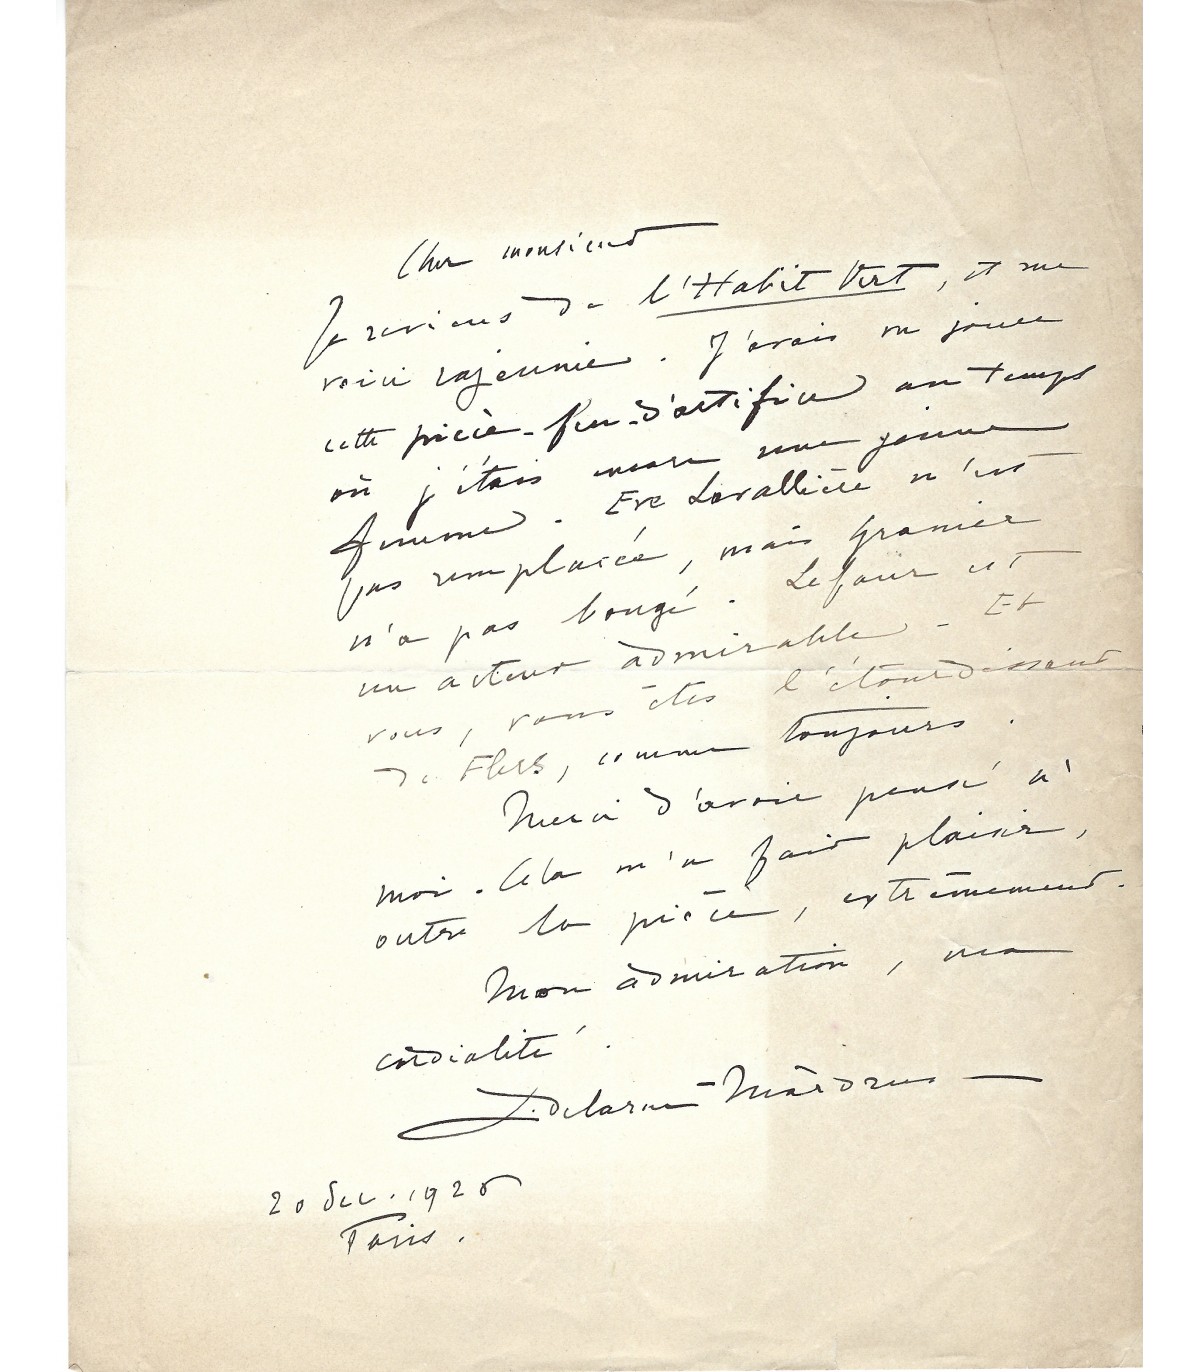 Cher monsieur
Je reviens de l'Habit Vert, et me
voici rajeunie. J'avais vu jouer
cette pièce-feu-d'artifice au temps
où j'étais encore une jeune
femme. Eve Lavallière n'est
pas remplacée, mais Granier
n'a pas bougé. Lefaur est
un acteur admirable. Et
vous, vous êtes l'étourdissant
de Flers, comme toujours.
Merci d'avoir pensé à
moi. Cela m'a fait plaisir,
outre la pièce, extrêmement.
Mon admiration, ma
cordialité.
L. Delarue-Mardrus
20 Dec. 1926
Paris.